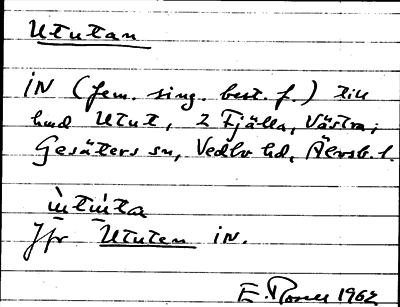 Ututan
iN (fem. sing. best. f.) till
hmd Utut, 2 Fjälla, Västra;
Gesäters sn, Vedbo hd, Älvsb. l.
Jfr Ututen iN.
E. Rosell 1962